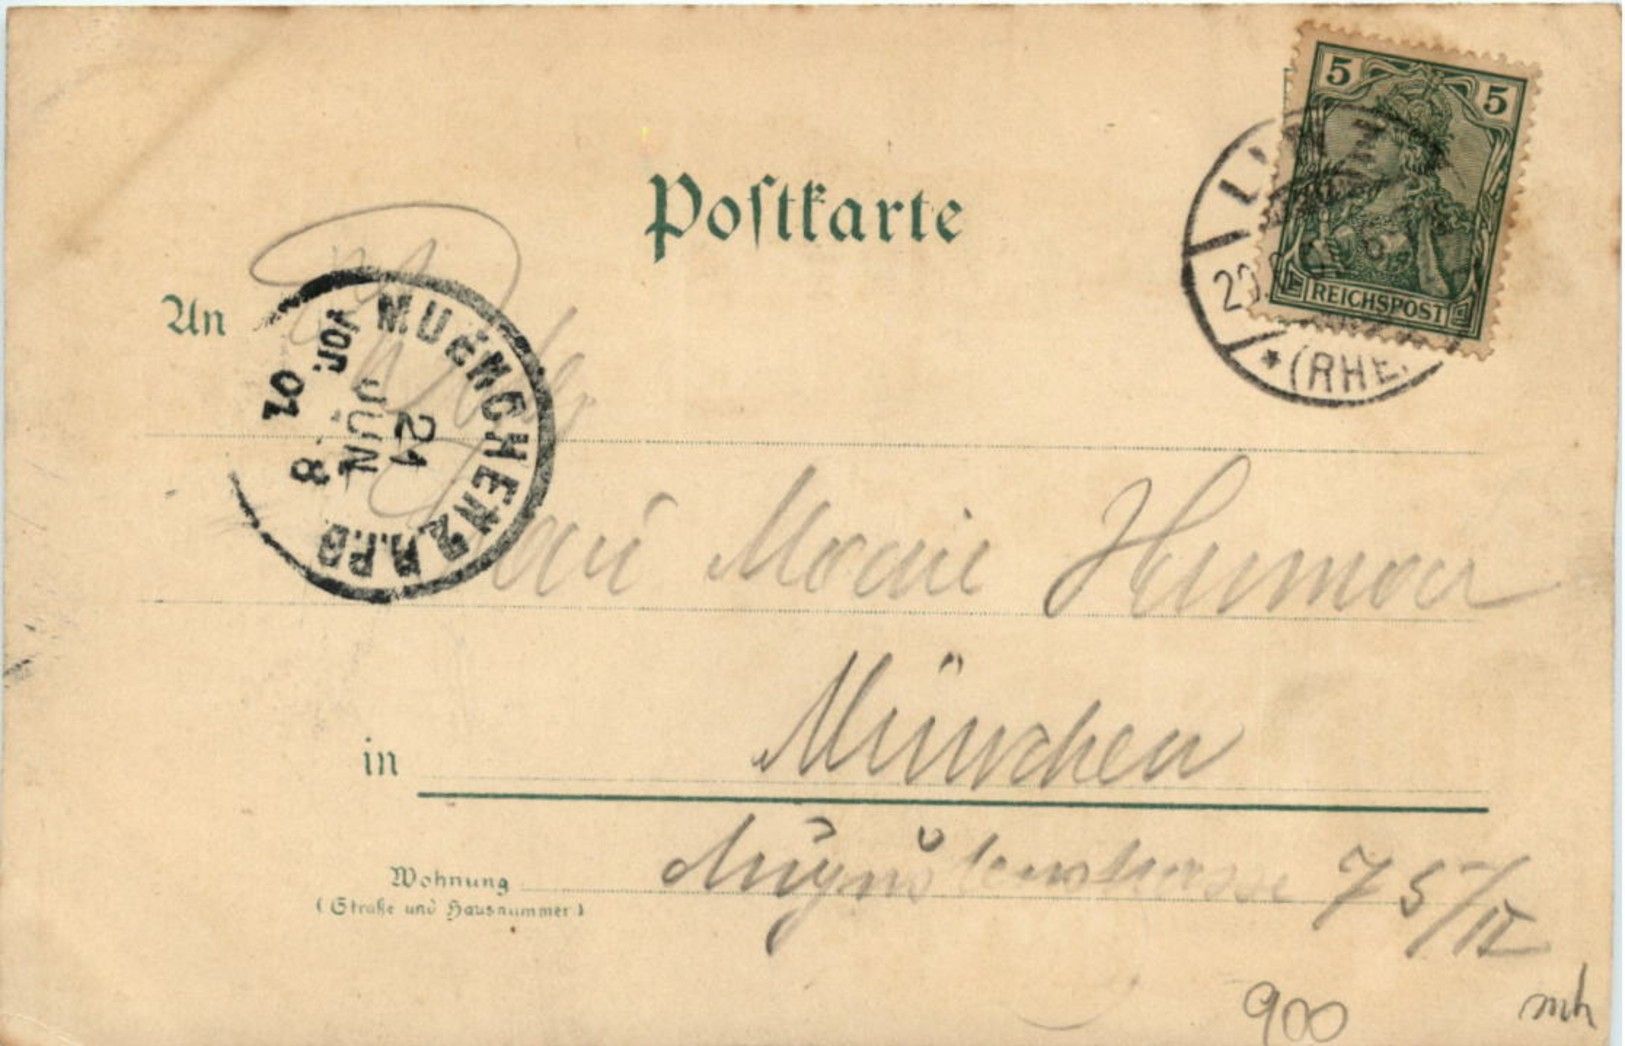 5 5
REICHSPOST
(RHE
Postkarte
An
MUENCHEN 2. B.P.B
Vor. 8
21
JUN
01
Frau Marie Humar
in München
Wohnung Augustenstrasse 75/II
(Straße und Hausnummer)
900
mh